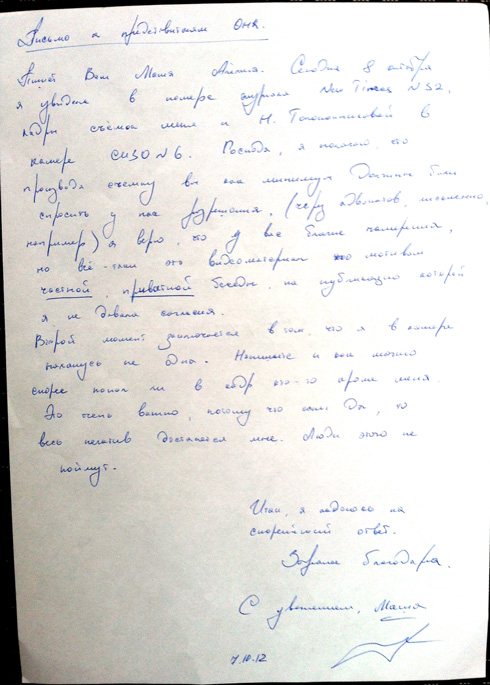 Письмо к представителям ОНК.
Пишет Вам Маша Алехина. Сегодня 8 октября
я увидела в номере журнала New Times N 32,
кадры съёмок меня и Н. Толоконниковой в
камере СИЗО N 6. Господа, я полагаю, что
производя съемку вы как минимум должны были
спросить у нас разрешения. (через адвокатов, письменно,
например) я верю, что у вас благие намерения,
но всё-таки это видеоматериал по мотивам
частной, приватной беседы, на публикацию которой
я не давала согласия.
Второй момент заключается в том, что я в камере
нахожусь не одна. Напишите и как можно
скорее попал ли в кадр кто-то кроме меня.
Это очень важно, потому что если да, то
весь негатив достанется мне. Люди этого не
поймут.
Итак, я надеюсь на
скорейший ответ.
Заранее благодарна.
С уважением, Маша
7.10.12